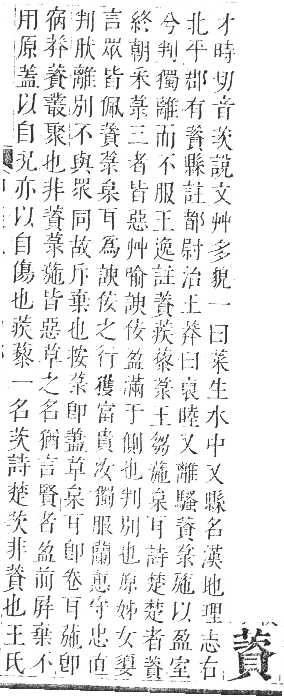 薋
才時切音茨說文艸多貌一曰菜生水中又縣名漢地理志右
北平郡有薋縣註都尉治王莽曰裒睦又離騷薋菉葹以盈室
兮判獨離而不服王逸註薋蒺藜菉王芻葹枲耳詩楚楚者薋
終朝采菉三者皆惡艸喻諛佞盈滿于側也判別也原姊女嬃
言眾皆佩薋菉枲耳為諛佞之行獲富貴汝獨服蘭蕙守忠直
判肰離別不與眾同故斥棄也按菉卽藎草枲耳卽卷耳葹卽
䕨莽薋叢聚也非薋菉葹皆惡草之名猶言賢者盈前屏棄不
用原葢以自況亦以自傷也蒺藜一名茨詩楚茨非薋也王氏